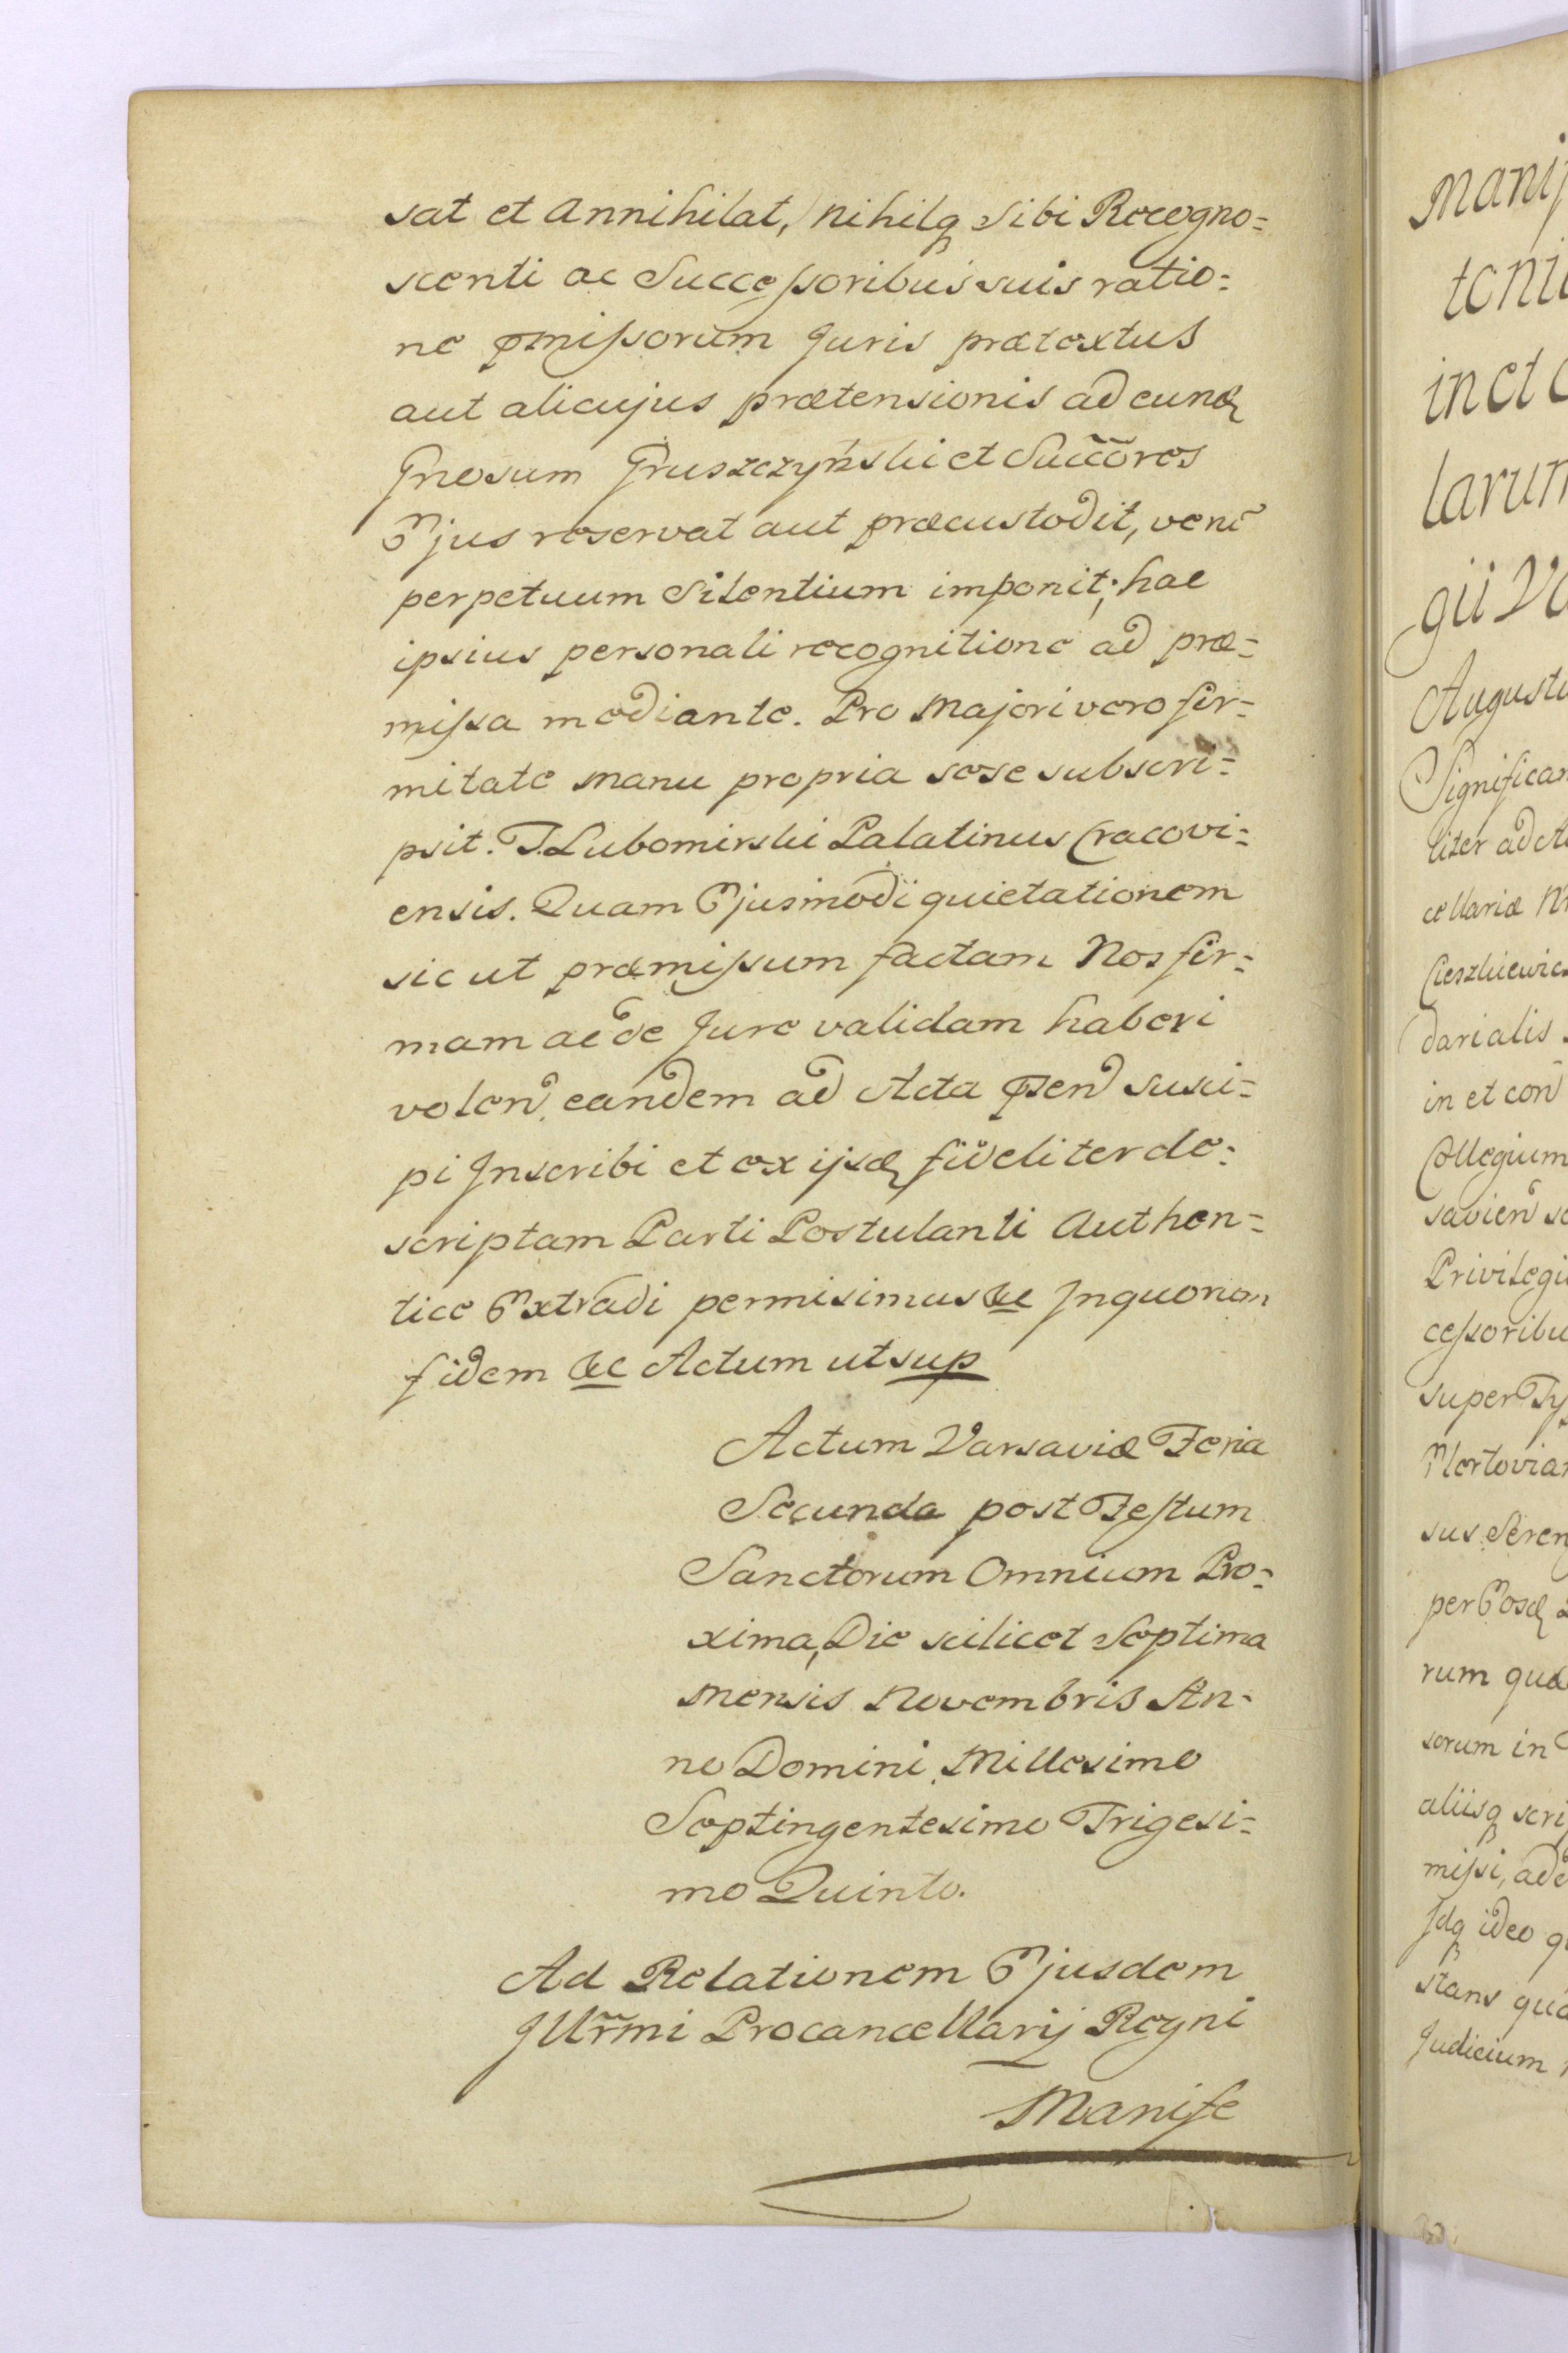 sat et Annihilat, nihilq sibi Recogno=
scenti ac Successoribus suis ratio=
ne pmissorum Juris prætextus
aut alicujus prætensionis ad eundq
Gnosum Gruszczyński et Succores
Ejus reservat aut præcustodit, veru
perpetuum Silentium imponit; hac
ipsius personali recognitione ad præ=
missa mediante. Pro Majori vero fir=
mitate manu propria sese subscri=
psit. T. Lubomirski Palatinus Cracovi=
ensis. Quam Ejusmodi quietationem
sic ut præmissum factam Nos fir=
mam ac de Jure validam haberi
volen eandem ad Acta psen susci=
pi Inscribi et ex ijsdq fideliter de=
scriptam Parti Postulanti Authen=
tice Extradi permisimus &c Inquorum
fidem &c Actum ut sup
Actum Varsaviæ Feria
Secunda post Festum
Sanctorum Omnium Pro=
xima, Die scilicet Septima
Mensis Novembris An=
no Domini Millesimo
Septingentesimo Trigesi=
mo Quinto.
Ad Relationem Ejusdem
Illrmi Procancellarij Regni
Manife
Manif
teni
in et
larum
gii Va
Augusti
Significan
liter ad A
cellariæ
Cieszkiewic
darialis
in et con
Collegium
savien
Privilegi
cessoribu
super Ty
sus Seren
per Eosdq
rum quæ
sorum in
aliisq scri
missi, ade
Idq ideo q
stans qua
Judicium